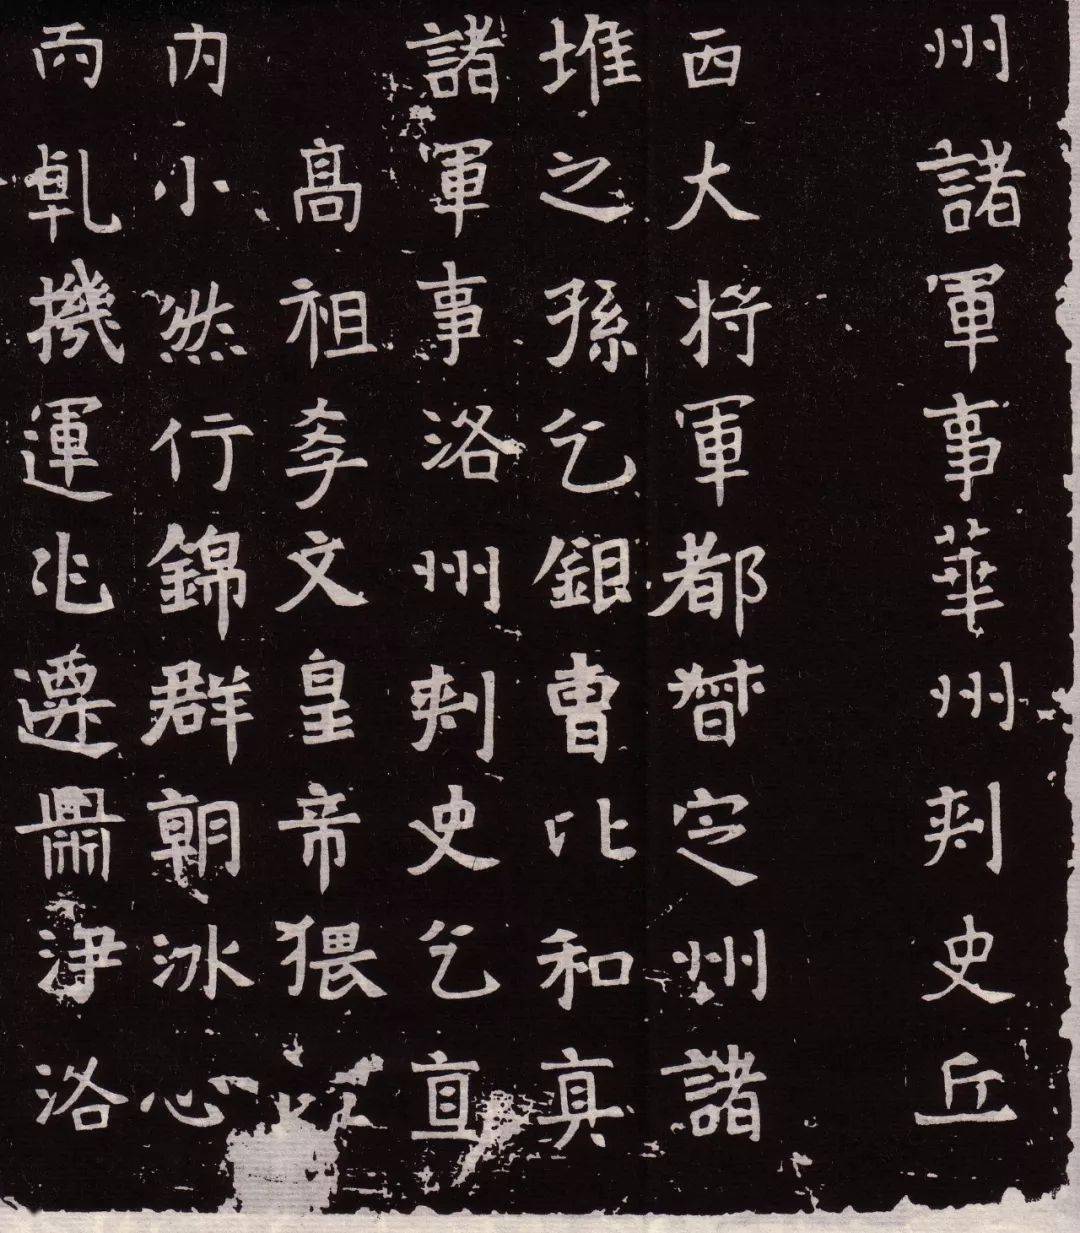 州諸軍事華州刾史丘
西大将軍都督定州諸
堆之孫乞銀曹比和真
諸軍事洛州刾史乞直
高祖孝文皇帝猥
内小然行錦群朝冰心
而乹機運兆遷鼎洛